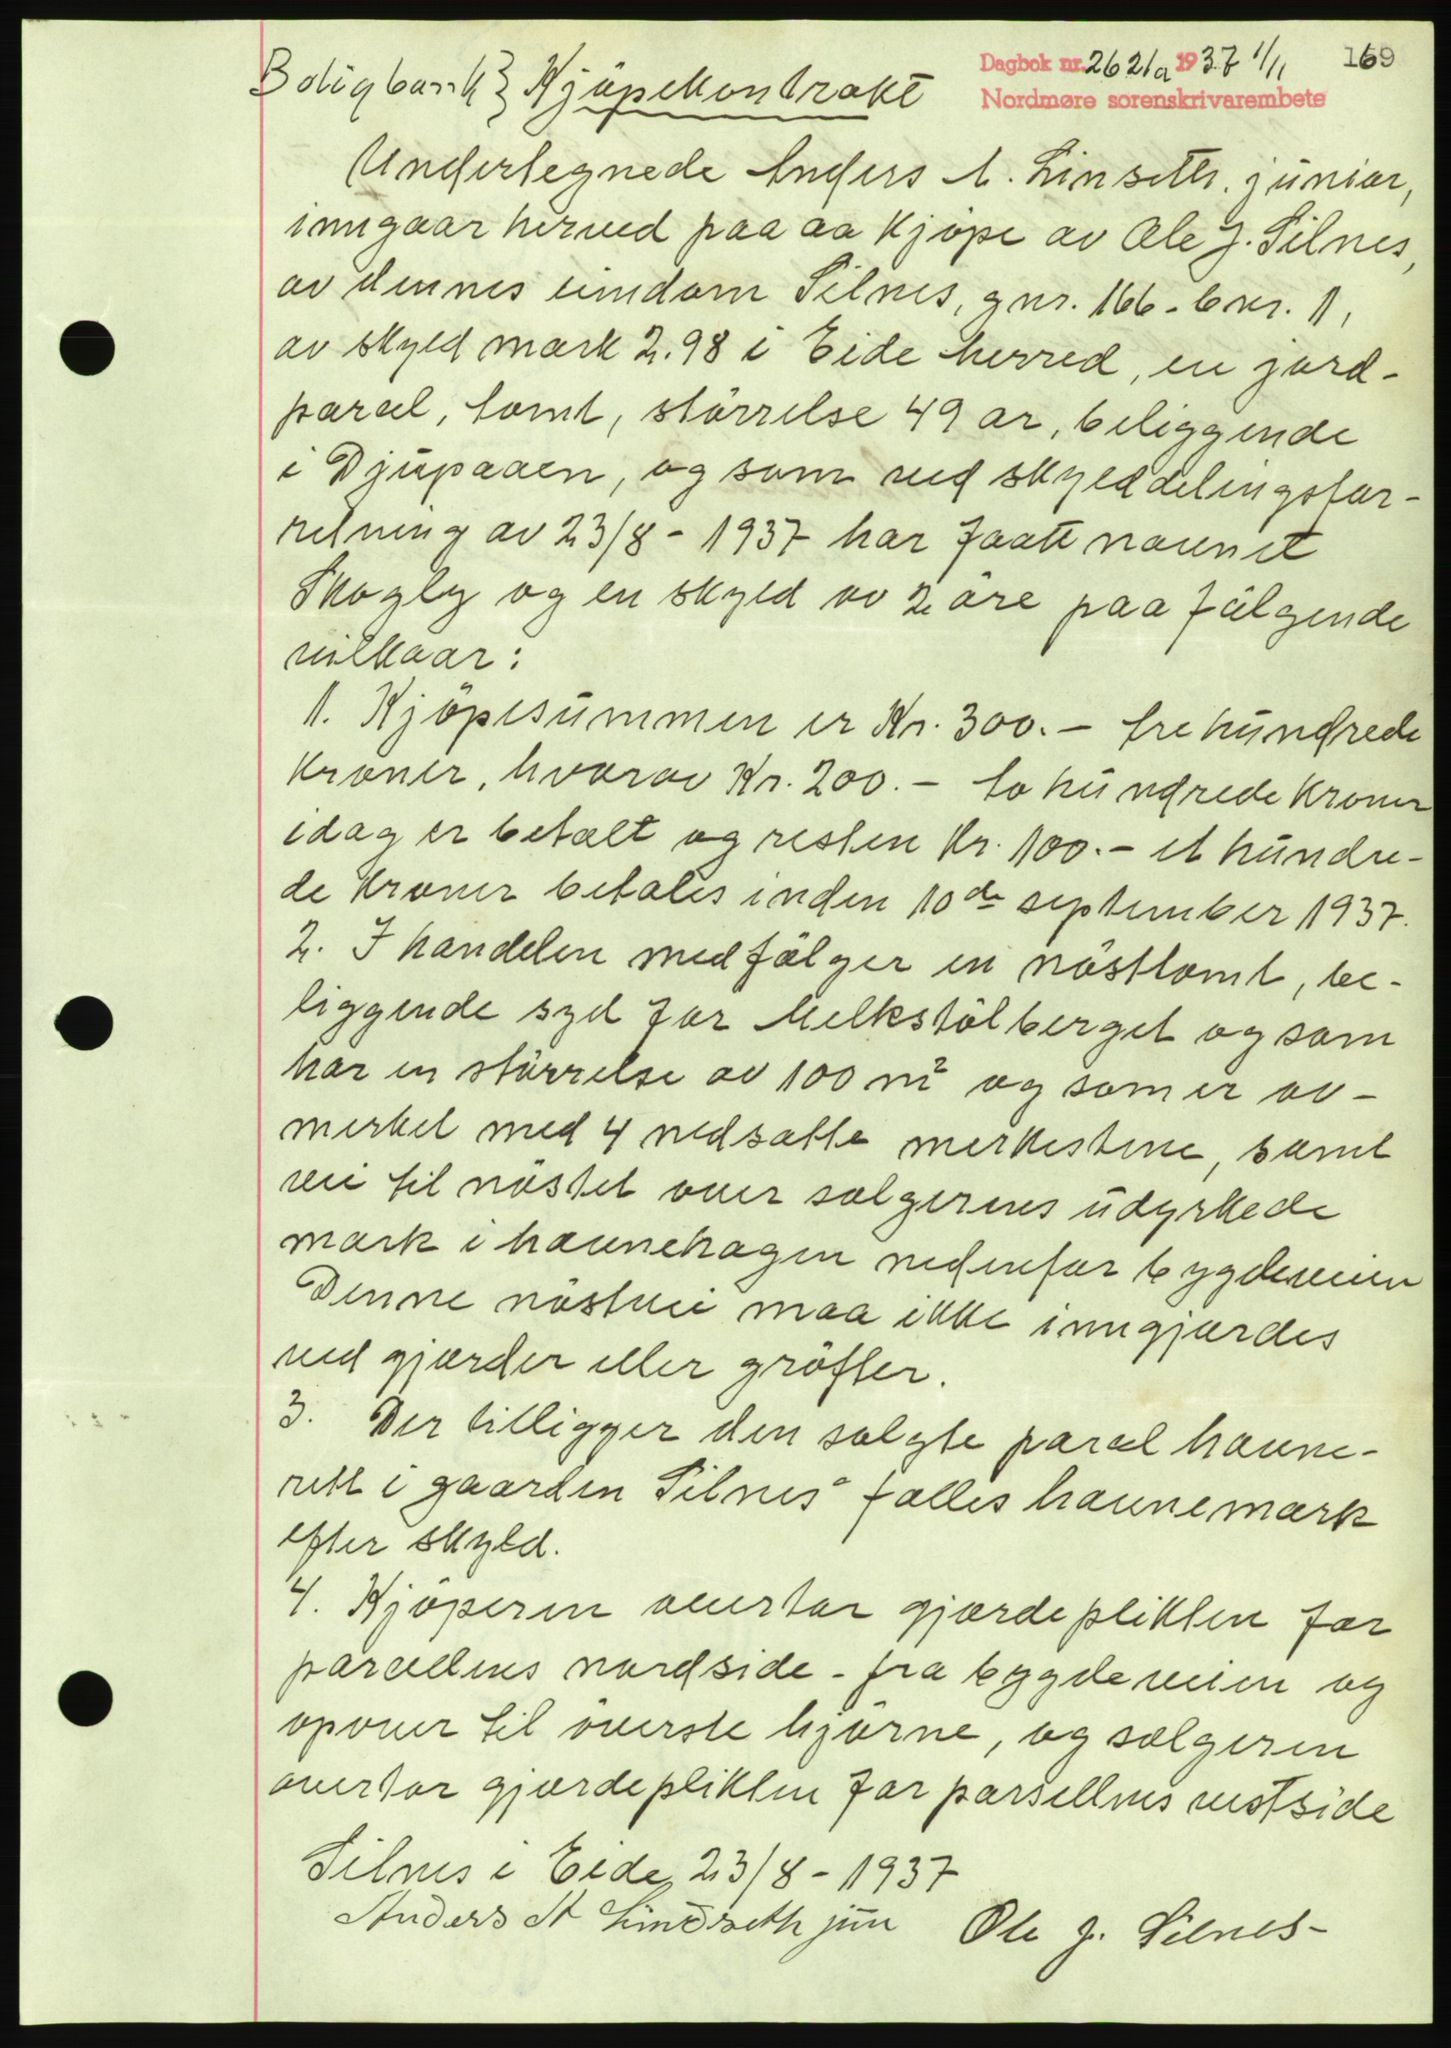 Dagbok nr. 2621a 1937 1/11 169
Nordmøre sorenskrivarembete
Boligbank} Kjöpekontrakt
Undertegnede Anders A. Linseth, junior,
inngaar herved paa aa kjöpe av Ole J. Silnes,
av dennes eiendom Silnes, gnr. 166 - bnr. 1,
av skyld mark 2.98 i Eide herred, en jord-
parcel, tomt, störrelse 49 ar, beliggende
i Djupaaen, og som ved skylddelingsfor-
retning av 23/8 - 1937 har faatt navnet
Skogly og en skyld av 2 öre paa fölgende
vilkaar:
1. Kjöpesummen er Kr. 300.- tre hundrede
kroner, hvorav Kr. 200.- to hundrede kroner
idag er betalt og resten Kr. 100.- et hundre-
de kroner betales inden 10de september 1937.
2. I handelen medfölger en nöst tomt, be-
liggende syd for Melkstölberget og som
har en störrelse av 100 m² og som er av-
merket med 4 nedsatte merkestene, samt
vei til nöstet over sælgerens udyrkede
mark i havnehagen nedenfor bygdeveien
Denne nöstvei maa ikke inngjærdes
ved gjærder eller gröfter.
3. Der tilligger den solgte parcel havne-
rett i gaarden Silnes' fælles havnemark
efter skyld.
4. Kjöperen overtar gjærdeplikten for
parcellens nordside - fra bygdeveien og
opover til överste hjörne, og sælgeren
overtar gjærdeplikten for parsellens vestside
Silnes i Eide 23/8 - 1937
Anders A Lindseth jun Ole J. Silnes -